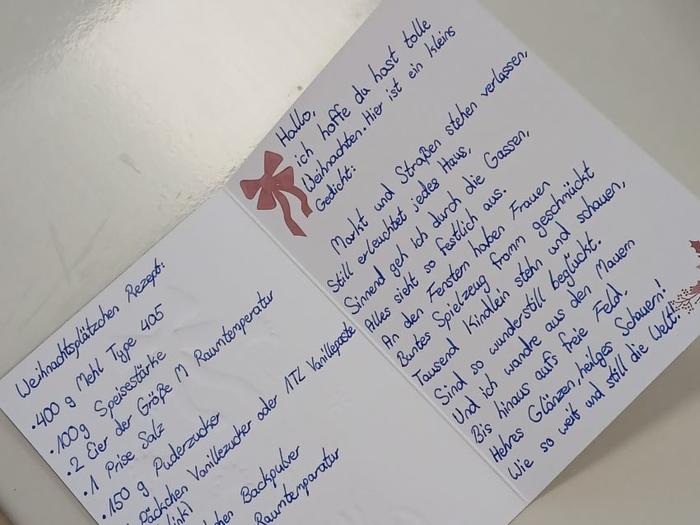 Weihnachtsplätzchen Rezept:
• 400 g Mehl Type 405
• 100g Speisestärke
• 2 Eier der Größe M Raumtemperatur
• 1 Prise Salz
• 150 g Puderzucker
Päckchen Vanillezucker oder 1TL Vanillepaste
Backpulver
Raumtemparatur
Hallo,
ich hoffe du hast tolle
Weihnachten. Hier ist ein kleins
Gedicht:
Markt und Straßen stehen verlassen,
Still erleuchtet jedes Haus,
Sinnend geh ich durch die Gassen,
Alles sieht so festlich aus.
An den Fenstern haben Frauen
Buntes Spielzeug fromm geschmückt
Tausend Kindlein stehn und schauen,
Sind so wunderstill beglückt.
Und ich wandre aus den Mauern
Bis hinaus aufs freie Feld.
Hehres Glänzen, heilges Schauern!
Wie so weit und still die Welt!